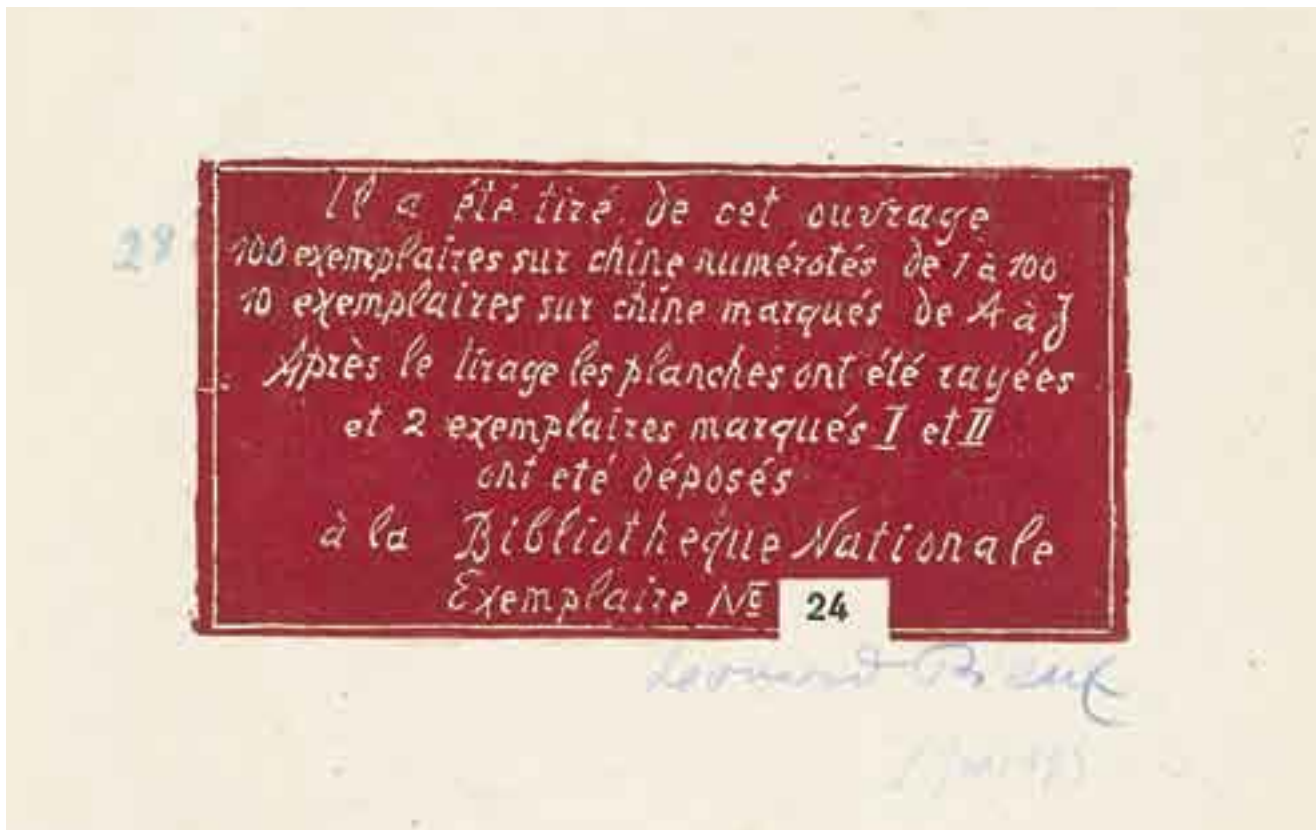 Il a été tiré de cet ouvrage
28
100 exemplaires sur chine numérotés de 1 à 100
10 exemplaires sur chine marqués de A à J
Après le tirage les planches ont été rayées
et 2 exemplaires marqués I et II
ont eté déposés
à la Bibliothèque Nationale
Exemplaire Nº 24